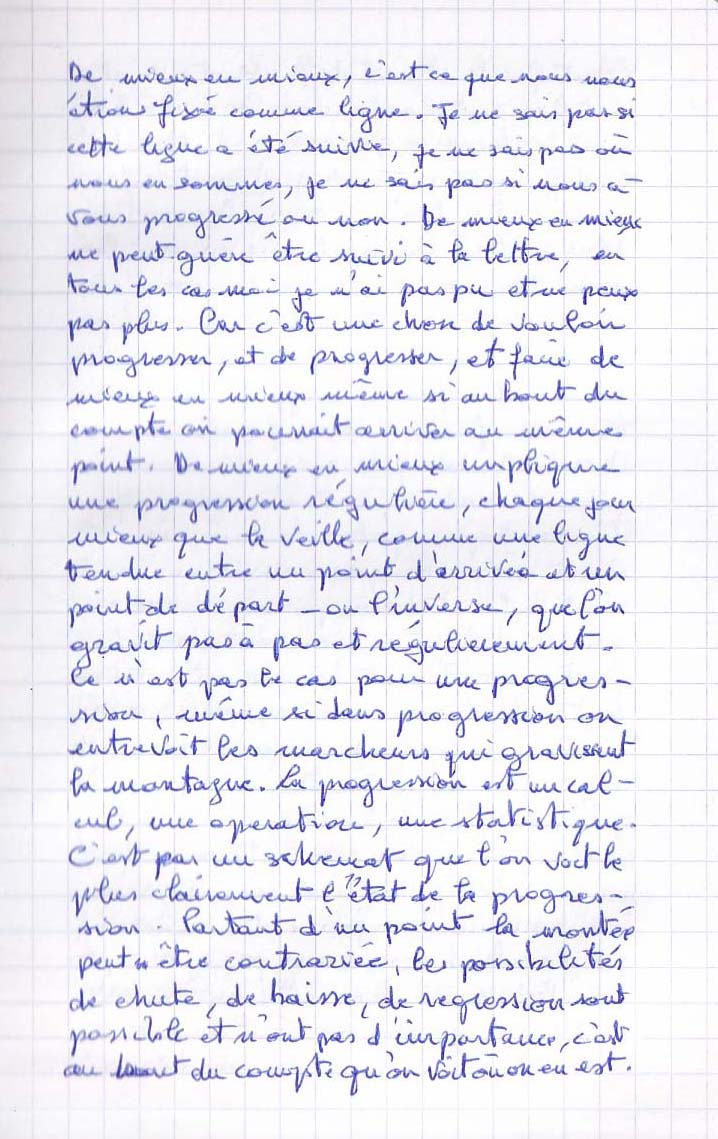 De mieux en mieux, c'est ce que nous nous
étions fixé comme ligne. Je ne sais pas si
cette ligne a été suivie, je ne sais pas où
nous en sommes, je ne sais pas si nous a-
vons progressé ou non. De mieux en mieux
ne peut guère être suivi à la lettre, en
tous les cas moi je n'ai pas pu et ne peux
pas plus. Car c'est une chose de vouloir
progresser, et de progresser, et faire de
mieux en mieux même si au bout du
compte on pourrait arriver au même
point. De mieux en mieux implique
une progression régulière, chaque jour
mieux que la veille, comme une ligne
tendue entre un point d'arrivée et un
point de départ - ou l'inverse, que l'on
gravit pas à pas et régulièrement.
Ce n'est pas le cas pour une progres-
sion, même si dans progression on
entrevoit les marcheurs qui gravissent
la montagne. La progression est un cal-
cul, une opération, une statistique.
C'est par un schemat que l'on voit le
plus clairement l'état de la progres-
sion. Partant d'un point la montée
peut être contrariée, les possibilités
de chute, de baisse, de regression sont
possible et n'ont pas d'importance, c'est
au bout du compte qu'on voit où on en est.